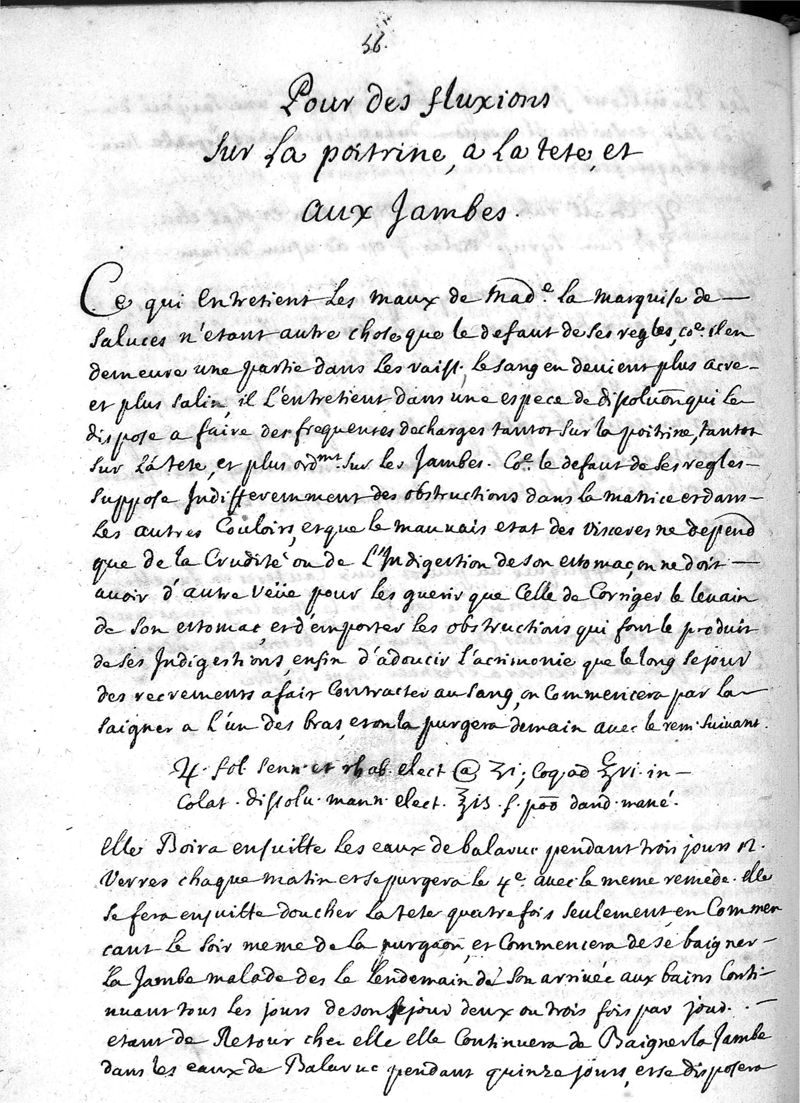 56.
Pour des fluxions
sur la poitrine, a la tete, et
aux Jambes.
Ce qui entretient les maux de Mad.e la marquise de —
Saluces n'etant autre chose que le defaut de ses regles, co.e il en
demeure une partie dans les vaiss. le sang en devient plus acre —
et plus salin, il l'entretient dans une espece de dissoluõn qui le
dispose a faire des frequentes decharges tantot sur la poitrine, tantot
sur la tete, et plus ord.mt sur les Jambes. Co.e le defaut de ses regles —
suppose Indifferemment des obstructions dans la matrice et dans —
les autres Couloirs, et que le mauuais etat des visceres ne depend
que de la Crudité ou de l'Indigestion de son estomac, on ne doit —
auoir d'autre veüe pour les guerir que Celle de Corriger le leuain
de son estomac, et d'emporter les obstructions qui font le produit
de ses Indigestions, enfin d'adoucir l'acrimonie que le long sejour
des recrements a fait Contracter au sang, on Commencera par la —
saigner a l'un des bras, et on la purgera demain avec le rem. suivant.
♃. fol. senn. et rhab. elect. @ ʒi; Coq. ad ℥vi. in —
Colat. dissolu. mann. elect. ℥iß. f. poõ dand. mané.
elle Boira ensuitte les eaux de balaruc pendant trois jours 12.
verres chaque matin et se purgera le 4.e avec le meme remede. elle
se fera ensuitte doucher la tete quatre fois seulement, en Commen
cant le soir meme de la purgaõn, et Commencera de se baigner —
la Jambe malade des le lendemain de son arrivée aux bains Conti-
nuant tous les jours de son sejour deux ou trois fois par jour. —
etant de Retour chez elle elle Continuera de Baigner la Jambe
dans les eaux de Balaruc pendant quinze jours, et se disposera